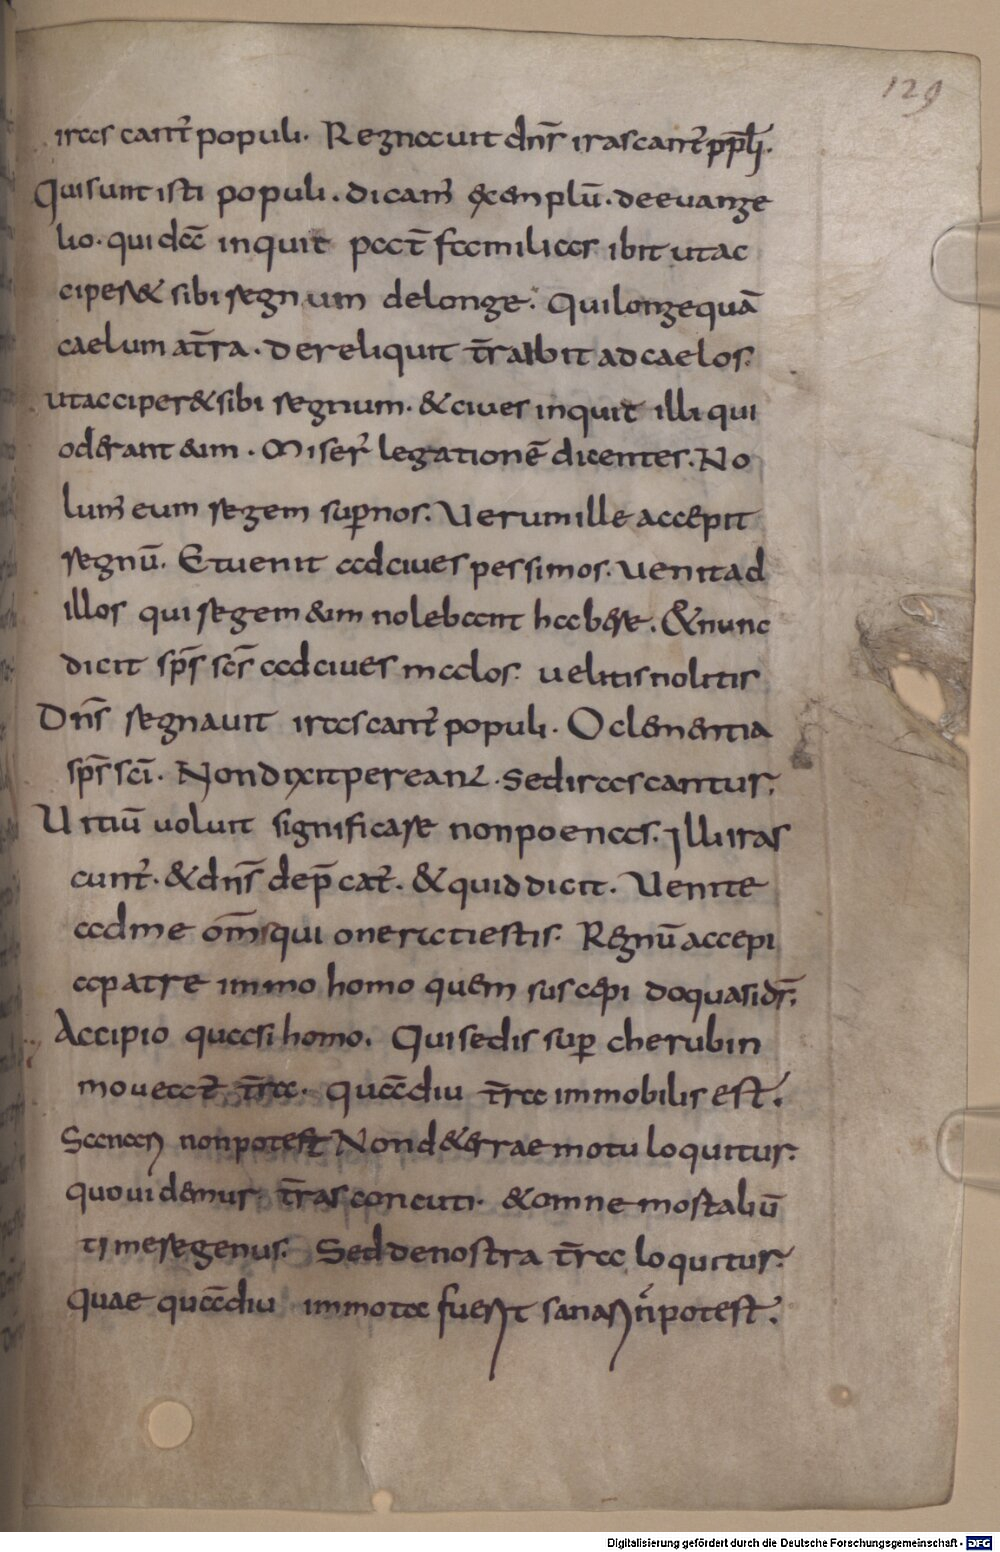 129
irascant̄ populi. Regnauit dn̄s irascant̄ ppl̄i.
Qui sunt isti populi. dicam̄ exemplū. de euange
lio. qui dēē inquit pat̄ familias ibit ut ac
ciperet sibi regnum de longe. Qui longe quā
caelum a t̄ra. dereliquit t̄ra abit ad caelos.
ut acciperet sibi regnum. & ciues inquit illi qui
oderant eum. Miser̄ legationē dicentes. No
lum̄ eum regem sup nos. Verum ille accepit
regnū. Et uenit ad ciues pessimos. uenit ad
illos qui regem eum nolebant habere. & nunc
dicit sp̄s sc̄s ad ciues malos. uelitis nolitis
Dn̄s regnauit irascant̄ populi. O clementia
sp̄s sc̄i. Non dixit pereant. sed irascantur.
Vitiū uoluit significare non poenas. Illi iras
cunt̄. & dn̄s dep̄cat̄. & quid dicit. Venite
ad me om̄s qui onerati estis. Regnū accepi
a patre immo homo quem suscepi do quasi ds̄.
Accipio quasi homo. Qui sedis sup cherubin
moueat̄ t̄ra. quādiu t̄ra immobilis est.
Sanari non potest Non de terrae motu loquitur.
quo uidemur t̄ras concuti. & omne mortaliū
timere genus. Sed de nostra t̄ra loquitur.
quae quādiu immota fuerit sanari n̄ potest.
Digitalisierung gefördert durch die Deutsche Forschungsgemeinschaft - DFG